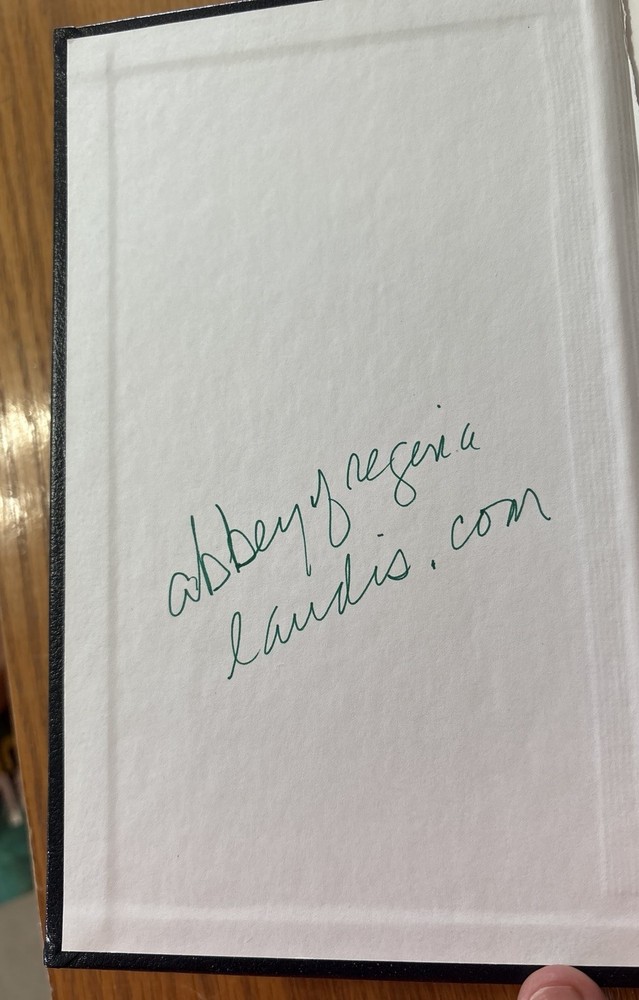 abbeyofregina
laudis.com